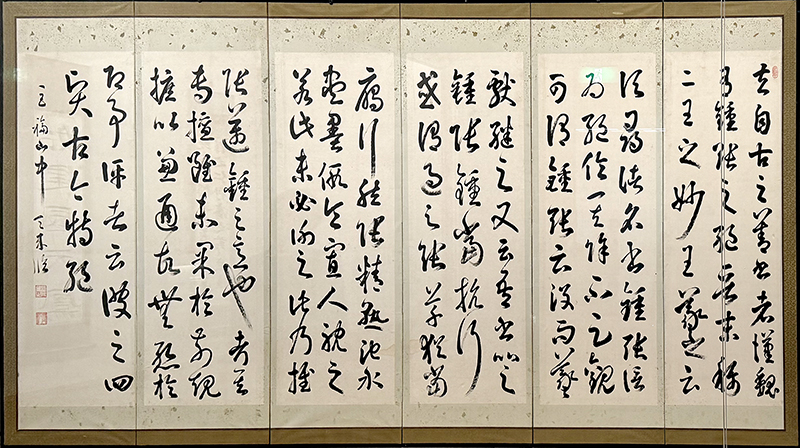 夫自古之善書者漢魏
有鍾張之絕晉末稱
二王之妙王羲之云
頃尋諸名書鍾張信
為絕倫其餘不足觀
可謂鍾張云沒而羲
獻繼之又云吾書比之
鍾張鍾當抗行
或謂過之張草猶當
鴈行然張精熟池水
盡墨假令寡人耽之
若此未必謝之此乃推
張邁鍾之意也考其
專擅雖未果於前規
摭以兼通故無慙於
即事評者云彼之四
賢古今特絕
福山中 天來臨